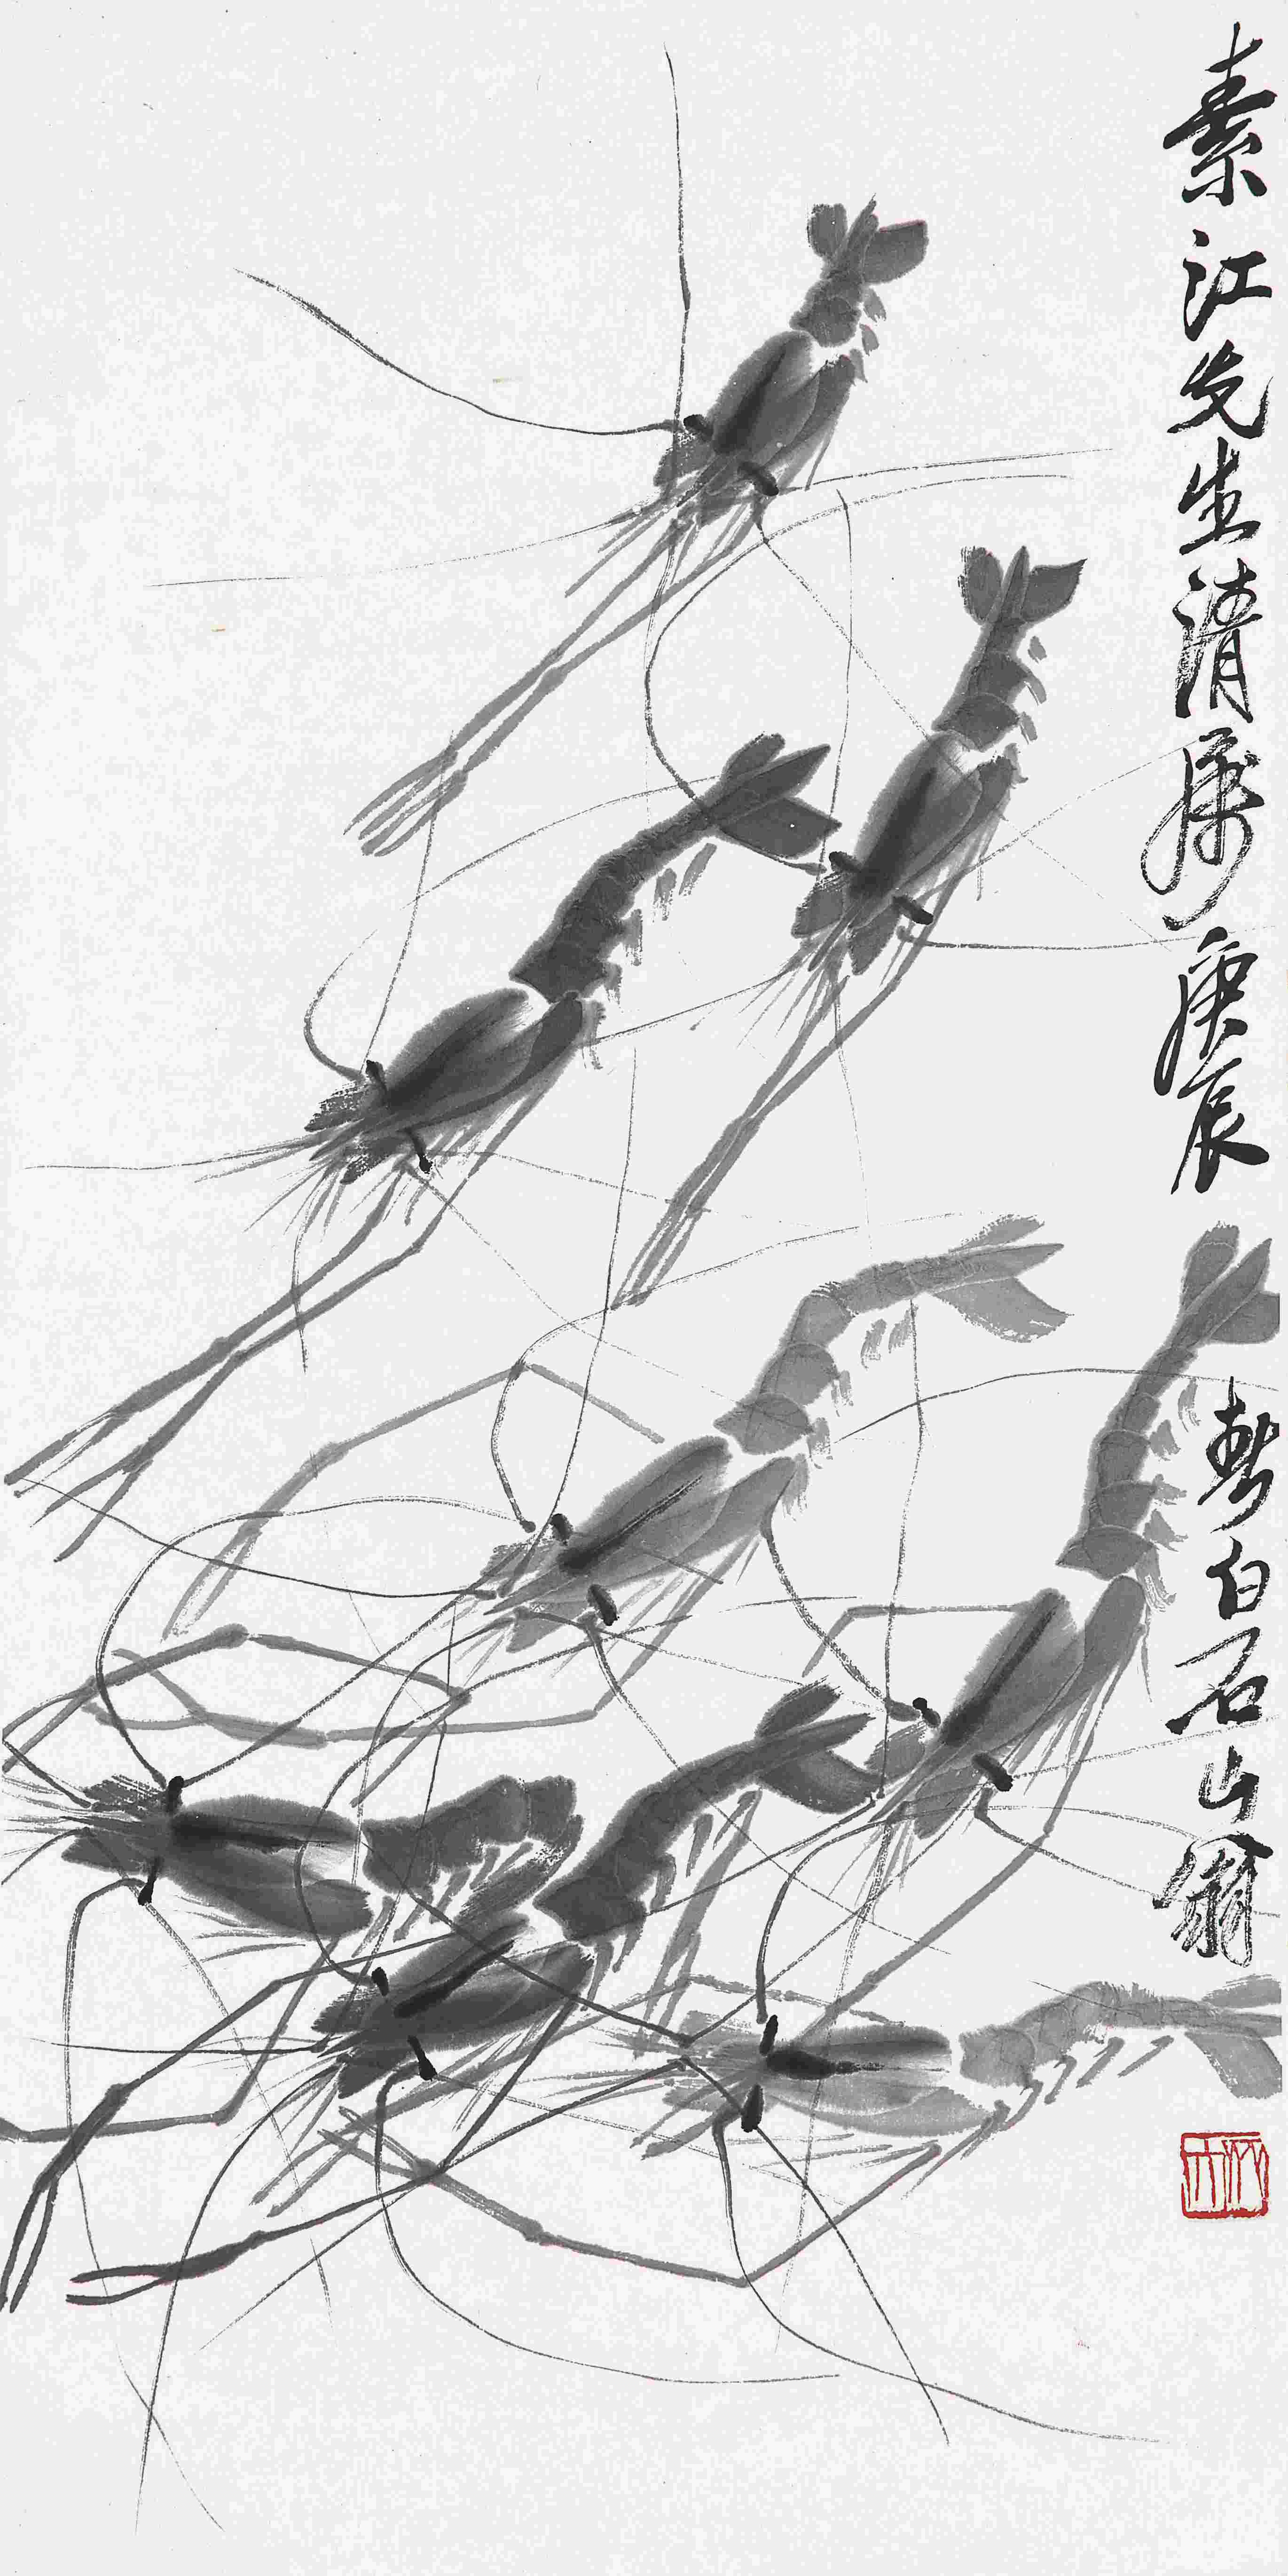 素江先生清属庚辰白石山翁